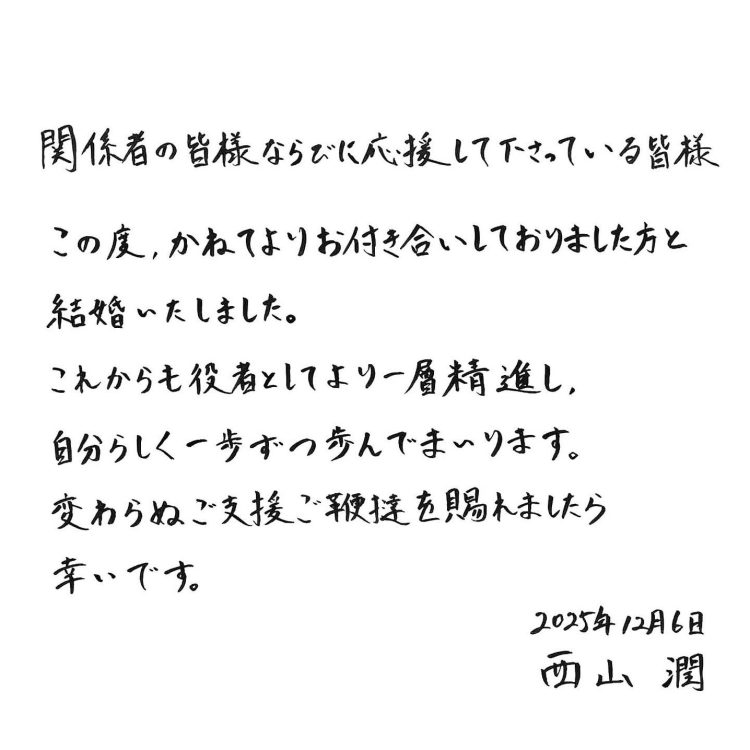 関係者の皆様ならびに応援して下さっている皆様
この度,かねてよりお付き合いしておりました方と
結婚いたしました。
これからも役者としてより一層精進し,
自分らしく一歩ずつ歩んでまいります。
変わらぬご支援ご鞭撻を賜れましたら
幸いです。
2025年12月6日
西山 潤